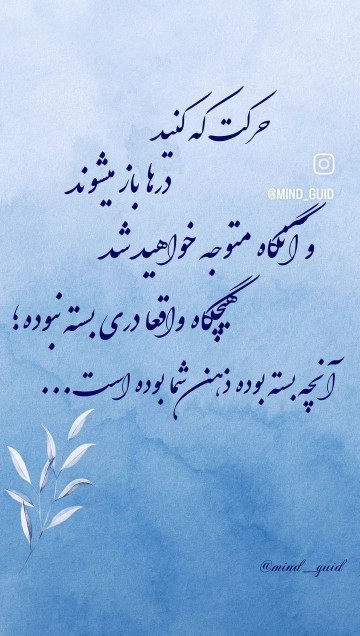 حرکت که کنید
درها باز میشوند
@MIND_GUID
و آنگاه متوجه خواهید شد
هیچگاه واقعا دری بسته نبوده؛
آنچه بسته بوده ذهن شما بوده است...
@mind_guid